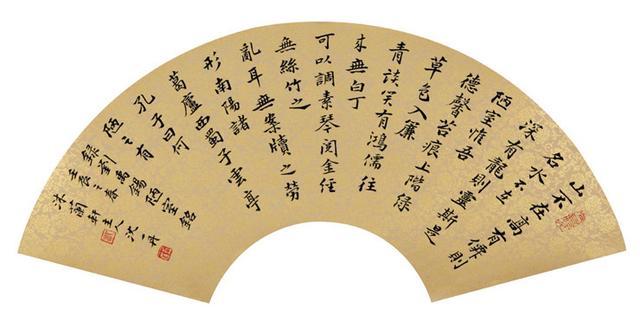 山不
在高有僊則
名水不在
深有龍則靈斯是
陋室惟吾
德馨苔痕上階緑
草色入簾
青談笑有鴻儒往
来無白丁
可以調素琴閱金経
無絲竹之
亂耳無案牘之勞
形南陽諸
葛廬西蜀子雲亭
孔子曰何
陋之有
録劉禹錫陋室銘
壬辰之春
沐蘭軒主人沈一丹